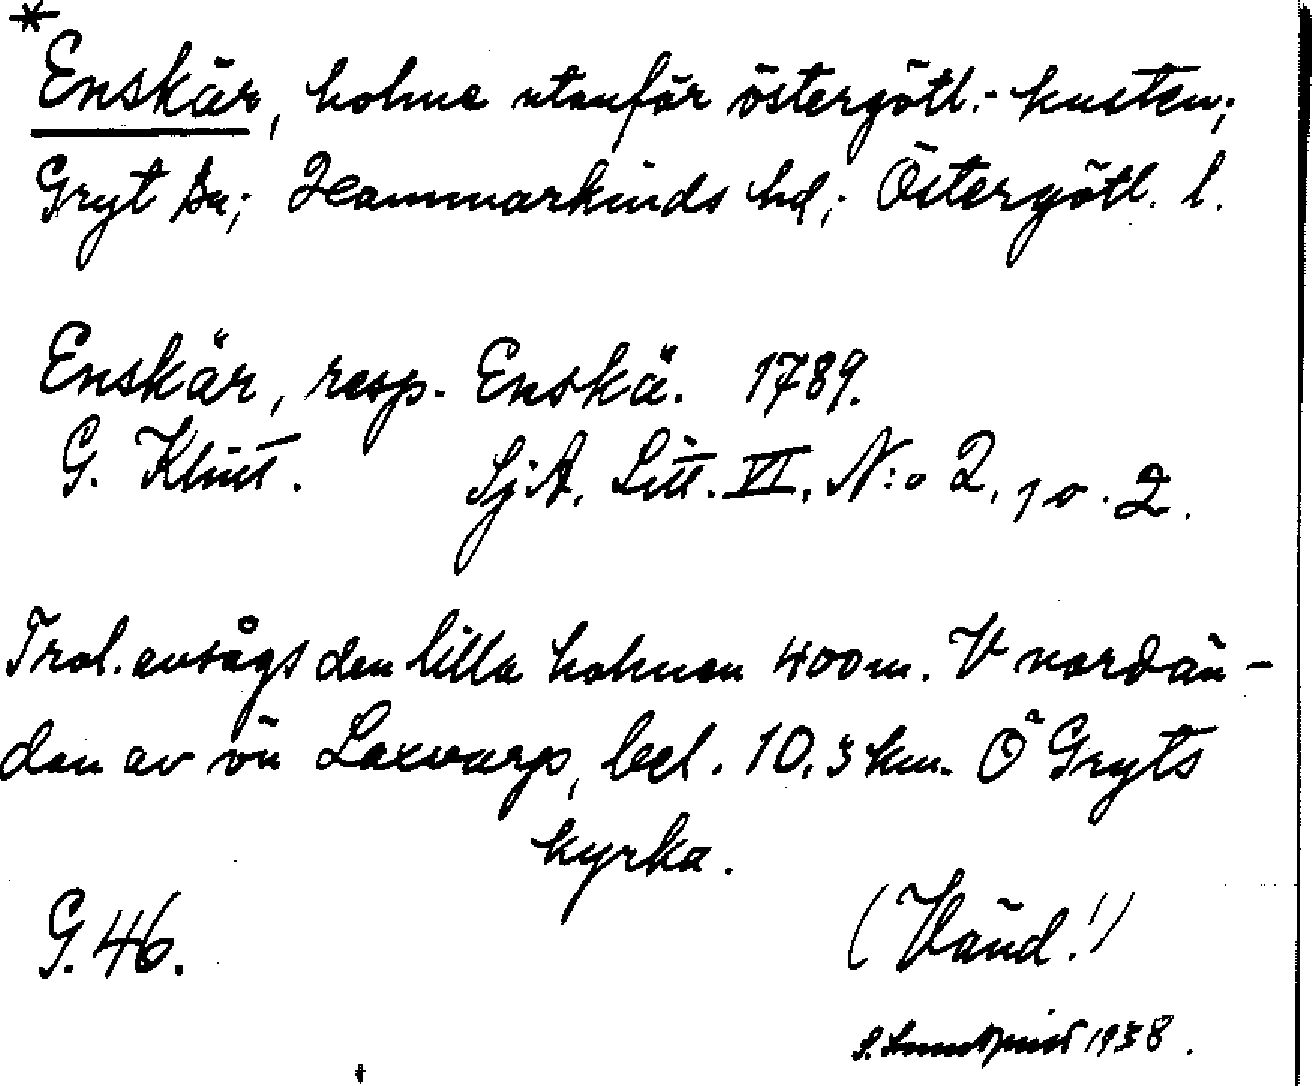 *
Enskär, holme utanför östergötl.-kusten;
Gryt sn; Hammarkinds hd; Östergötl. l.
Enskär, resp. Enskä. 1789.
G. Klint. SjA, Litt. VI, N:o 2, 10. 2.
Trol. avsågs den lilla holmen 400m. V nordän-
den av ön Laxvarp, bel. 10,3 km. Ö Gryts
kyrka.
G. 46. (Vänd!)
1938.